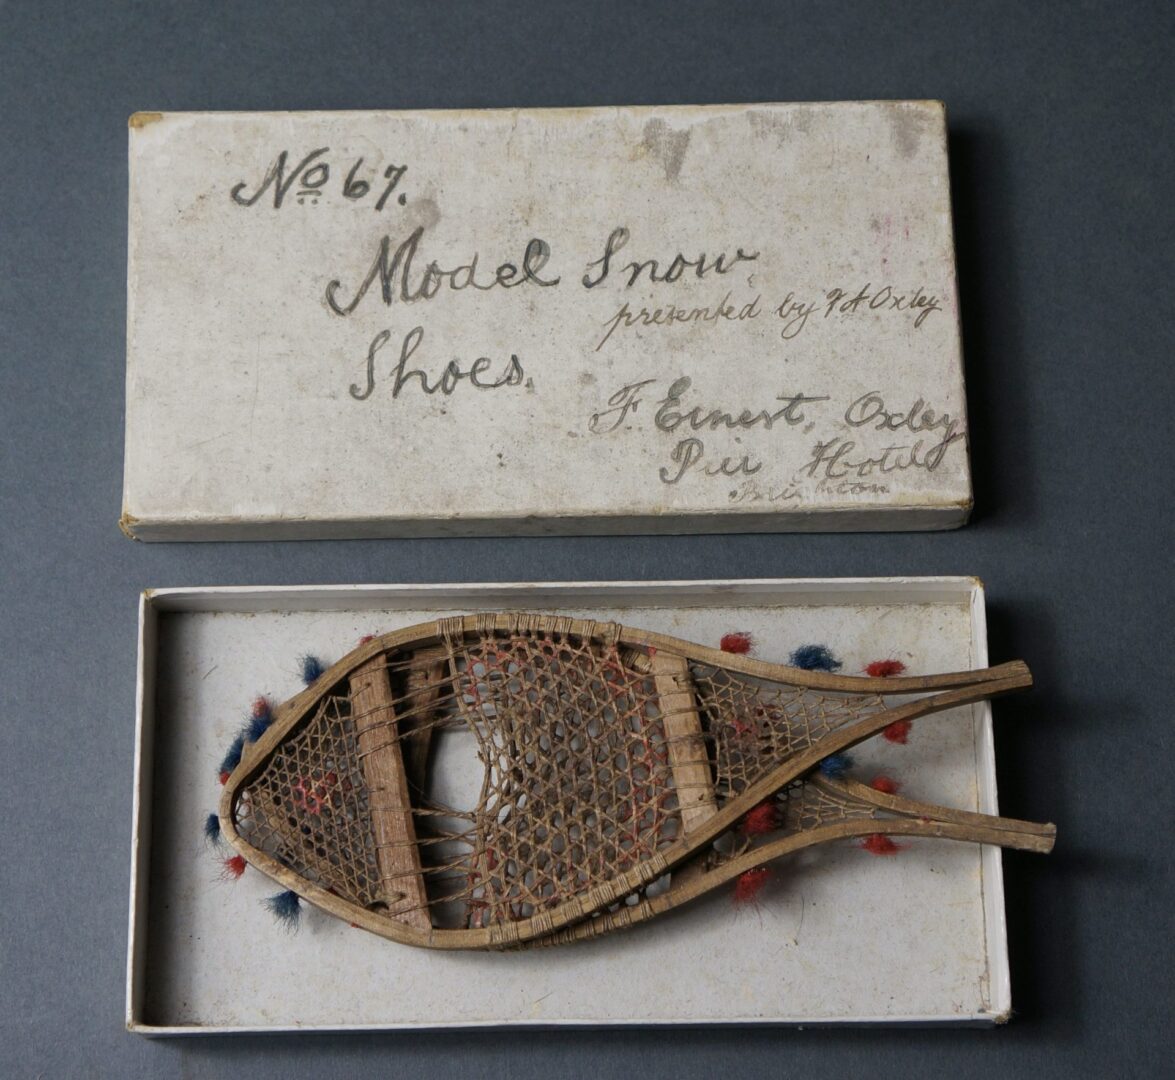 No 67.
Model Snow
presented by F A Oxley
Shoes.
F. Ernest, Oxley
Pier Hotel
Brighton